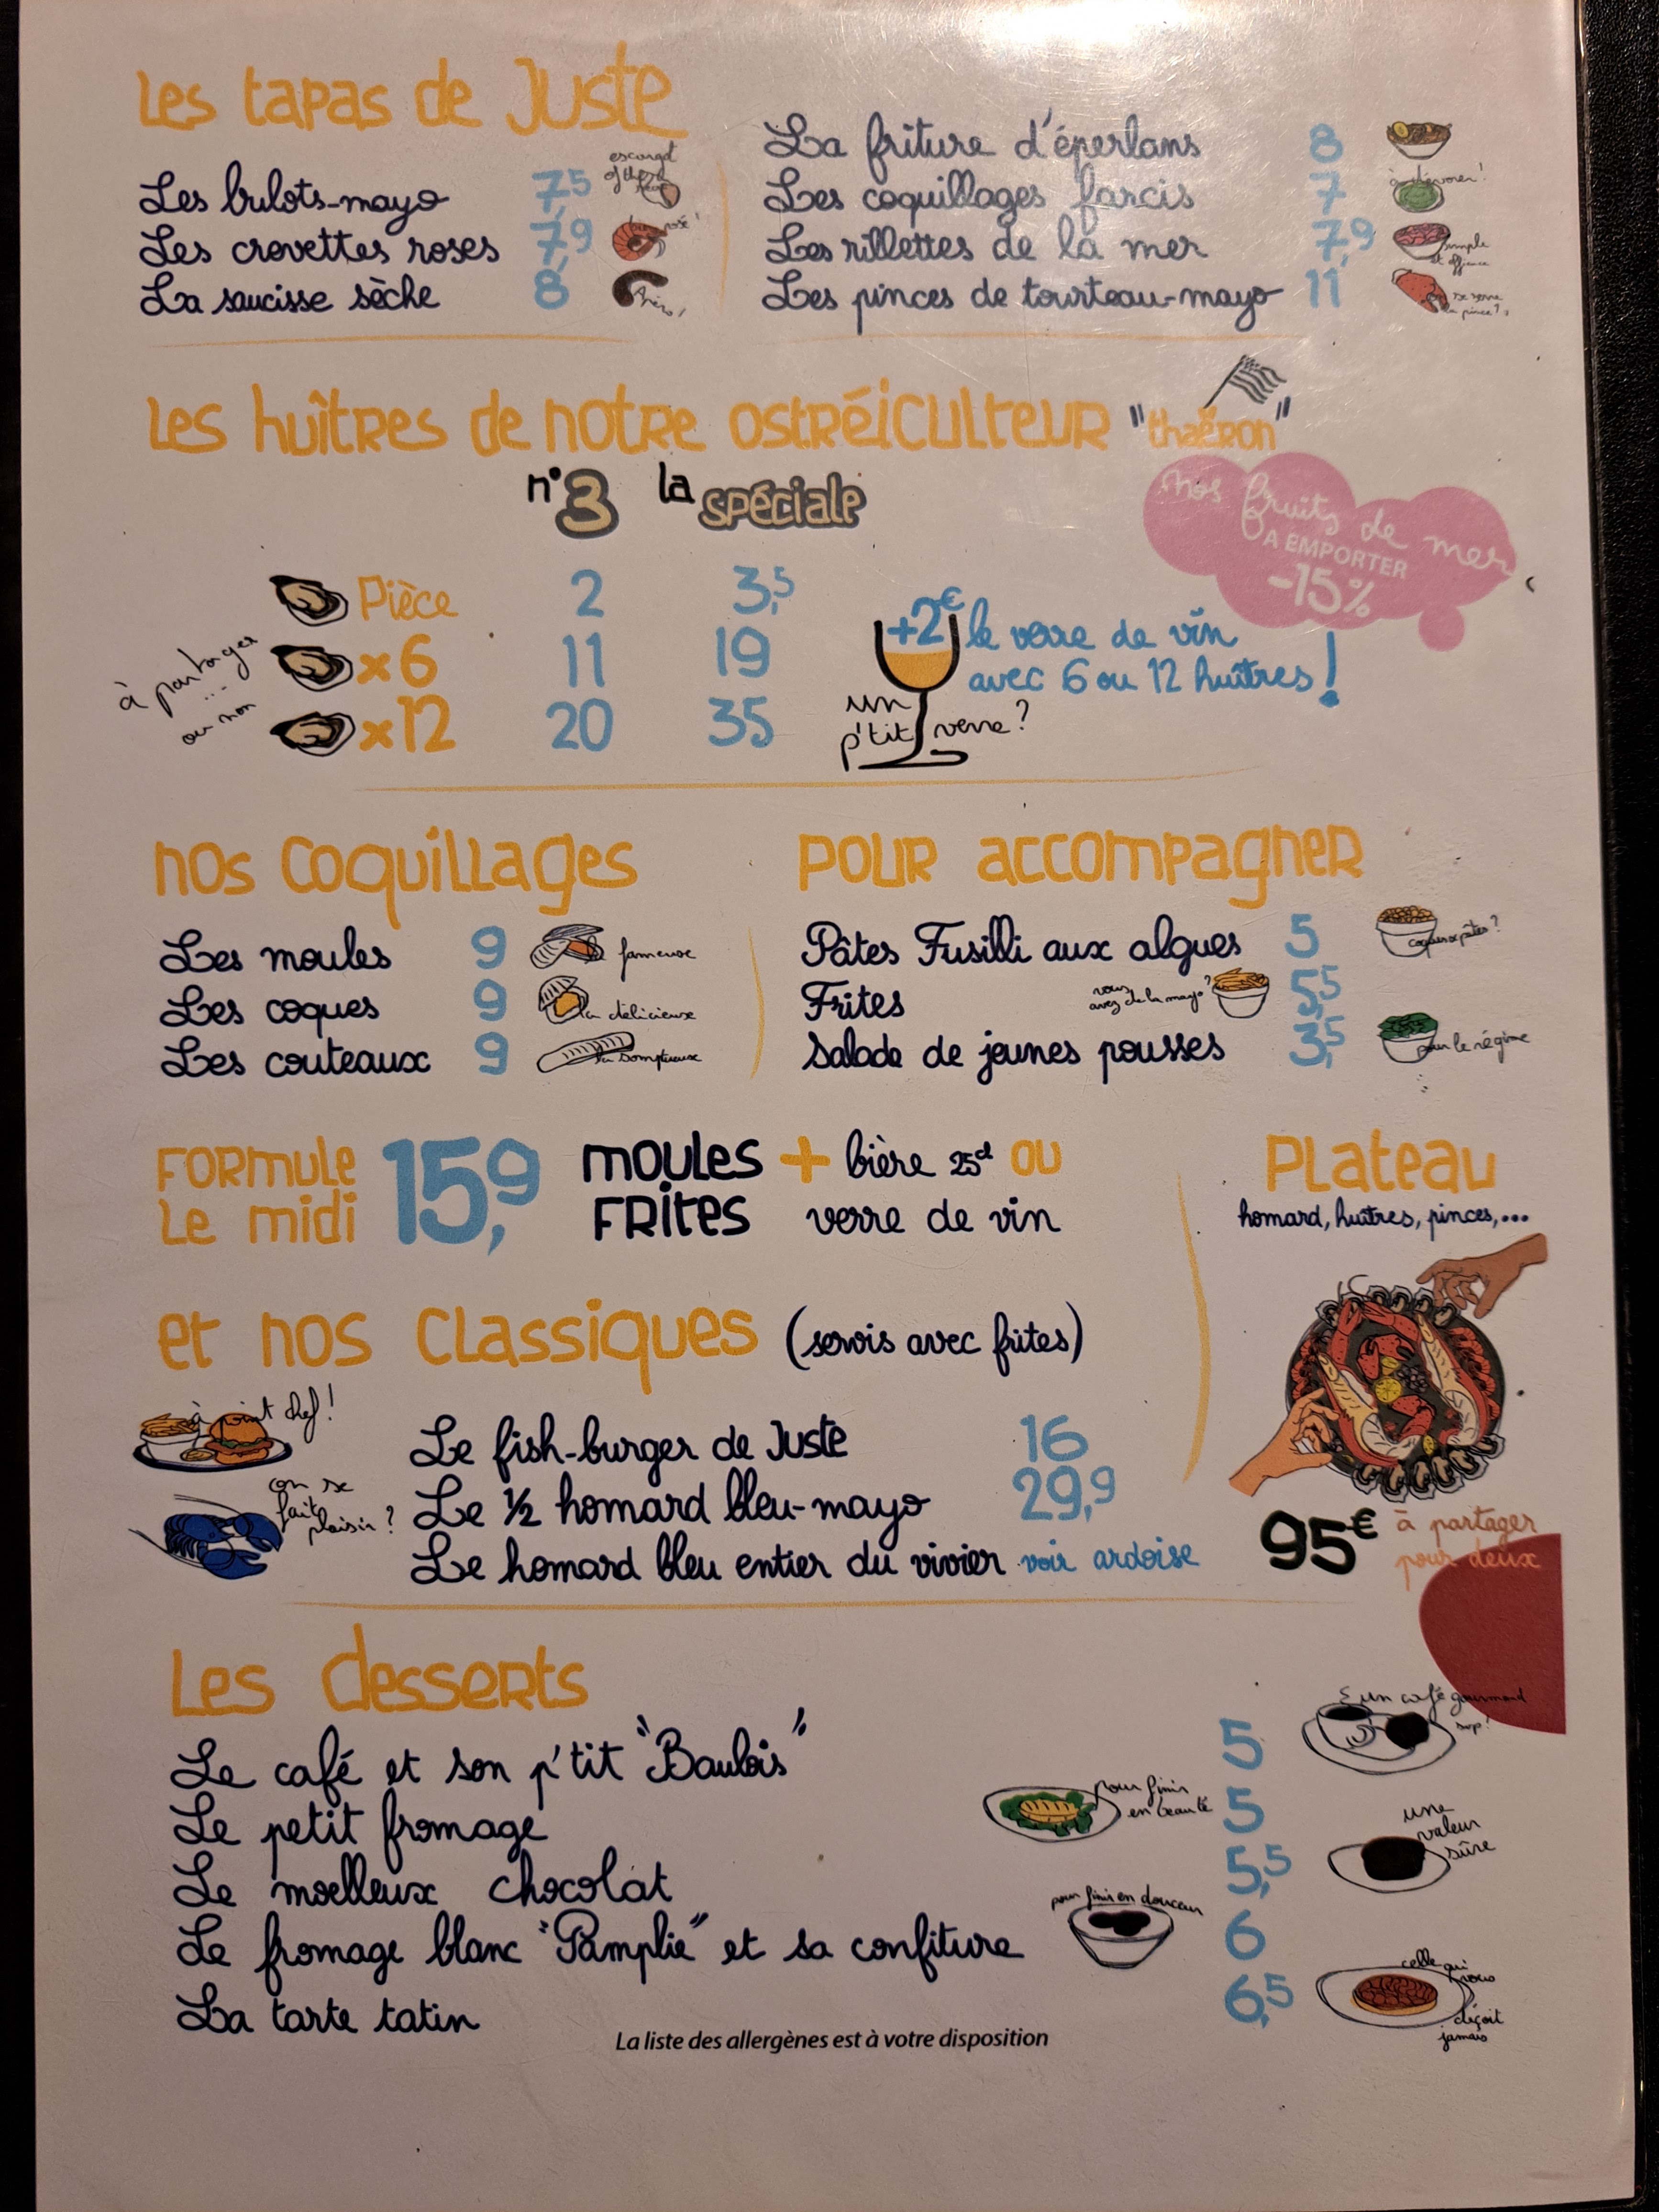 Les tapas de Juste
Les bulots-mayo 7,5
Les crevettes roses 7,9
La saucisse sèche 8
La friture d'éperlans 8
Les coquillages farcis 7
à dévorer!
Les rillettes de la mer 7,9
simple et efficace
Les pinces de tourteau-mayo 11
on se serre la pince?
Les huîtres de notre ostréiculteur "thaëron"
n°3 la spéciale
nos fruits de mer
A EMPORTER
-15%
Pièce 2 3,5
x6 11 19
x12 20 35
à partager
... ou non
+2€ le verre de vin
avec 6 ou 12 huîtres!
un p'tit verre?
nos coquillages
Les moules 9
fameuse
Les coques 9
la délicieuse
Les couteaux 9
POUR accompagner
Pâtes Fusilli aux algues 5
Frites 5,5
vous avez de la mayo?
Salade de jeunes pousses 3,5
pour le régime
FORmule Le midi 15,9 moules FRites + bière 25cl ou verre de vin
PLateau
homard, huîtres, pinces,...
95€ à partager pour deux
et nos classiques (servis avec frites)
à point chef!
Le fish-burger de Juste 16
on se fait plaisir?
Le ½ homard bleu-mayo 29,9
Le homard bleu entier du vivier voir ardoise
Les desserts
Le café et son p'tit "Baulois" 5
un café gourmand svp!
Le petit fromage 5
pour finir en beauté
Le moelleux chocolat 5,5
une valeur sûre
Le fromage blanc "Pamplie" et sa confiture 6
pour finir en douceur
La tarte tatin 6,5
celle qui vous déçoit jamais
La liste des allergènes est à votre disposition